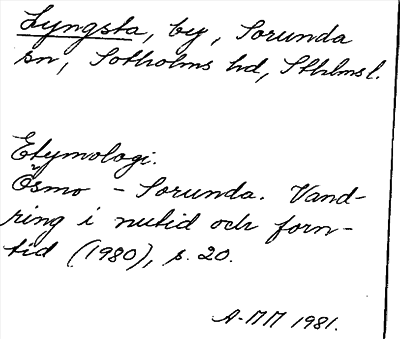 Lyngsta, by, Sorunda
sn, Sotholms hd, Sthlms l.
Etymologi.
Ösmo - Sorunda. Vand-
ring i nutid och forn-
tid (1980), s. 20.
A-MM 1981.